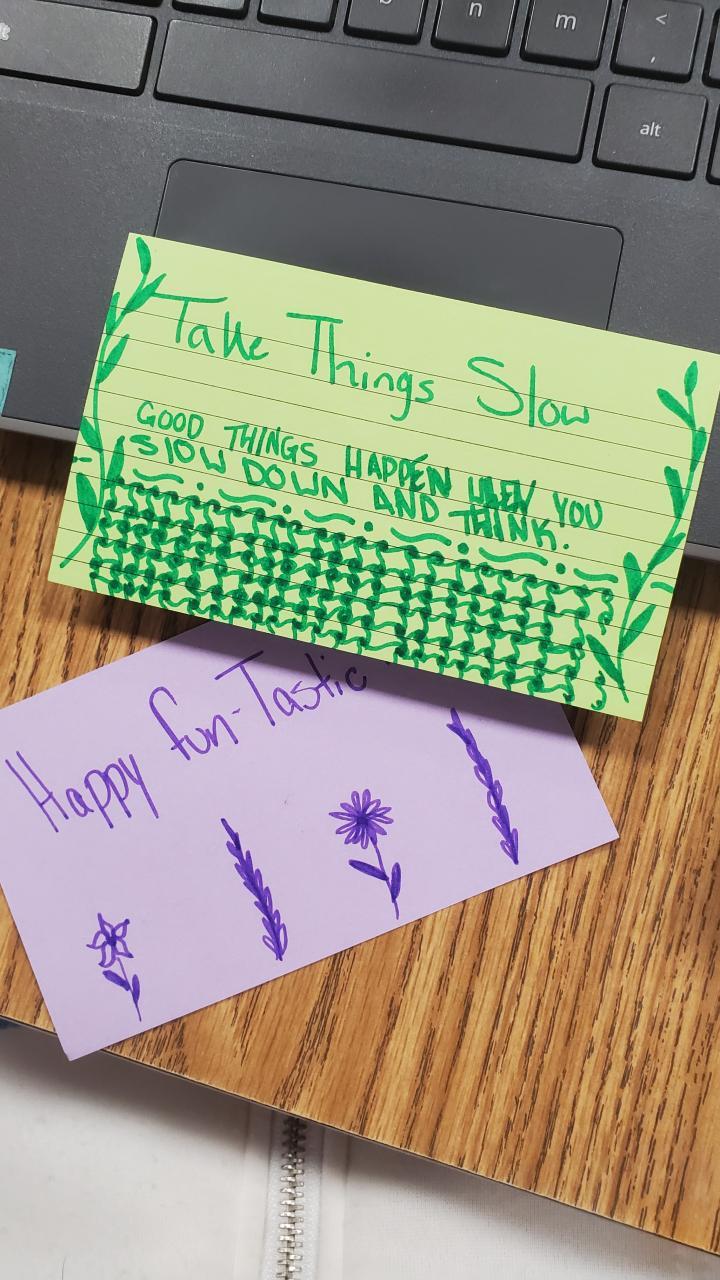 n m < ,
alt
Take Things Slow
GOOD THINGS HAPPEN WHEN YOU
SlOW DOWN AND THINK.
Happy fun-Tastic